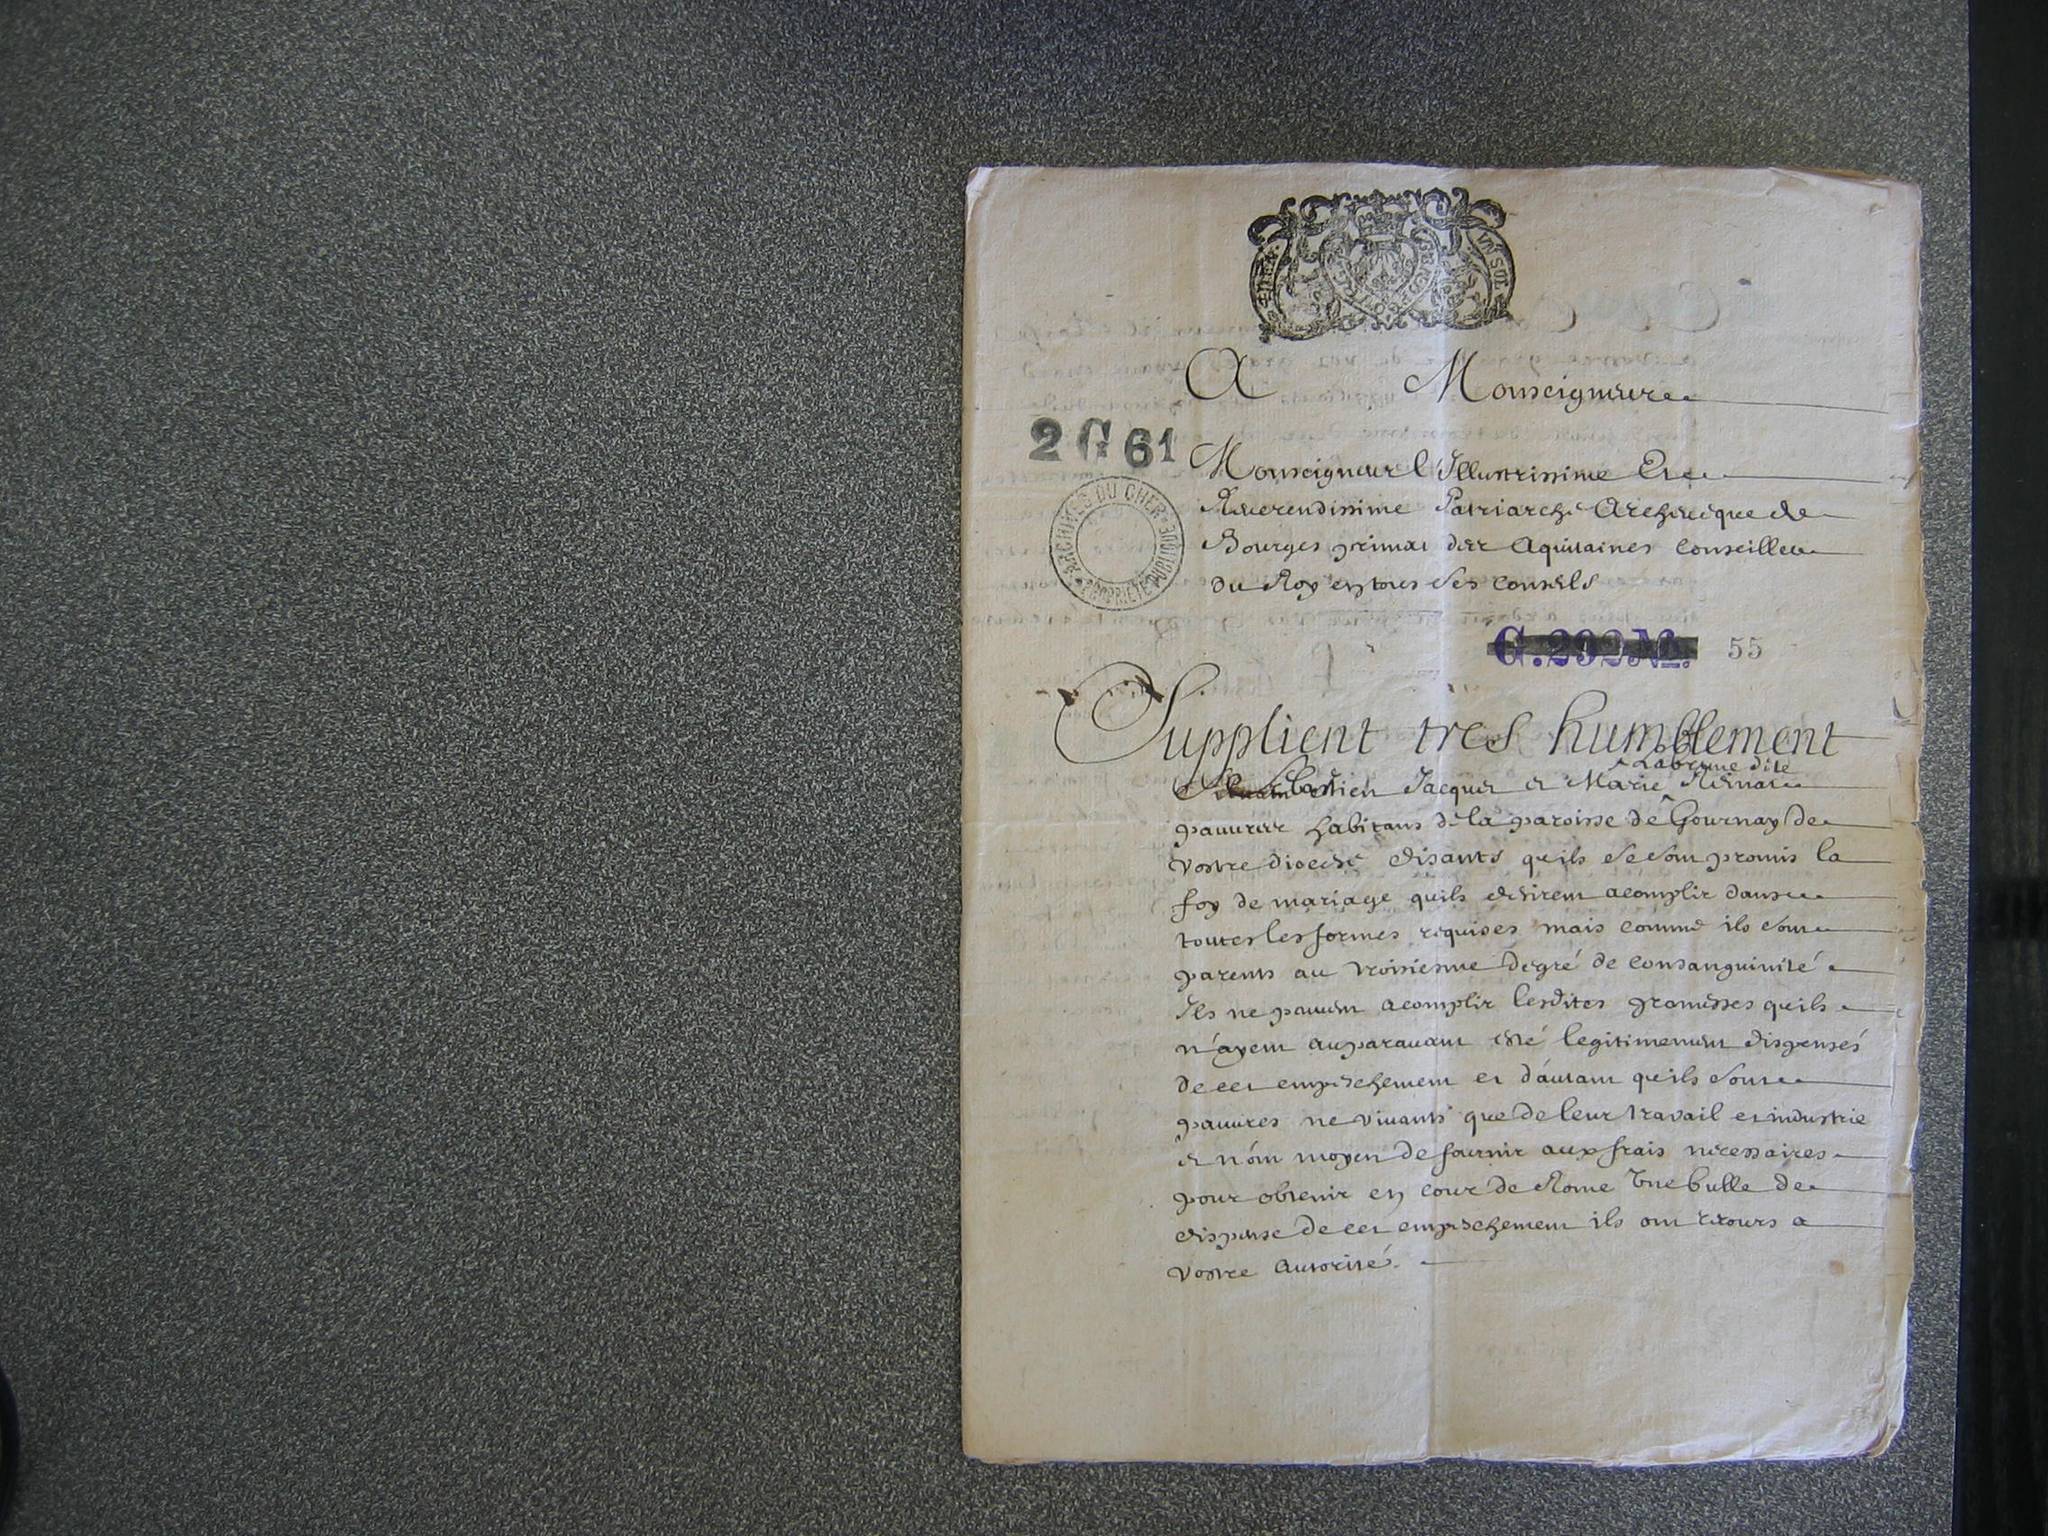 A Monseigneur
2 G 61
ARCHIVES DU CHER
PROPRIÉTÉ PUBLIQUE
Monseigneur l'Illustrissime Et
Reverendissime Patriarche Archevéque de
Bourges primat des Aquitaines Conseiller
du Roy en tous ses conseils
G. 292 No. 55
Supplient tres humblement
Labrune dite
Sebastien Jacquet et Marie Renat
pauvres habitans de la paroisse de Gournay de
vostre diocese disants quils se sont promis la
foy de mariage quils desirent acomplir dans
toutes les formes requises mais comme ils sont
parents au troisiesme degré de consanguinité
Ils ne peuvent acomplir lesdites promesses quils
n'ayent auparavant esté legitimement dispensés
de cet empeschement et dáutant quils sont
pauvres ne vivants que de leur travail et industrie
et nónt moyen de fournir aux frais necessaires
pour obtenir en cour de Rome Une bulle de
dispense de cet empeschement ils ont recours a
vostre autorité.